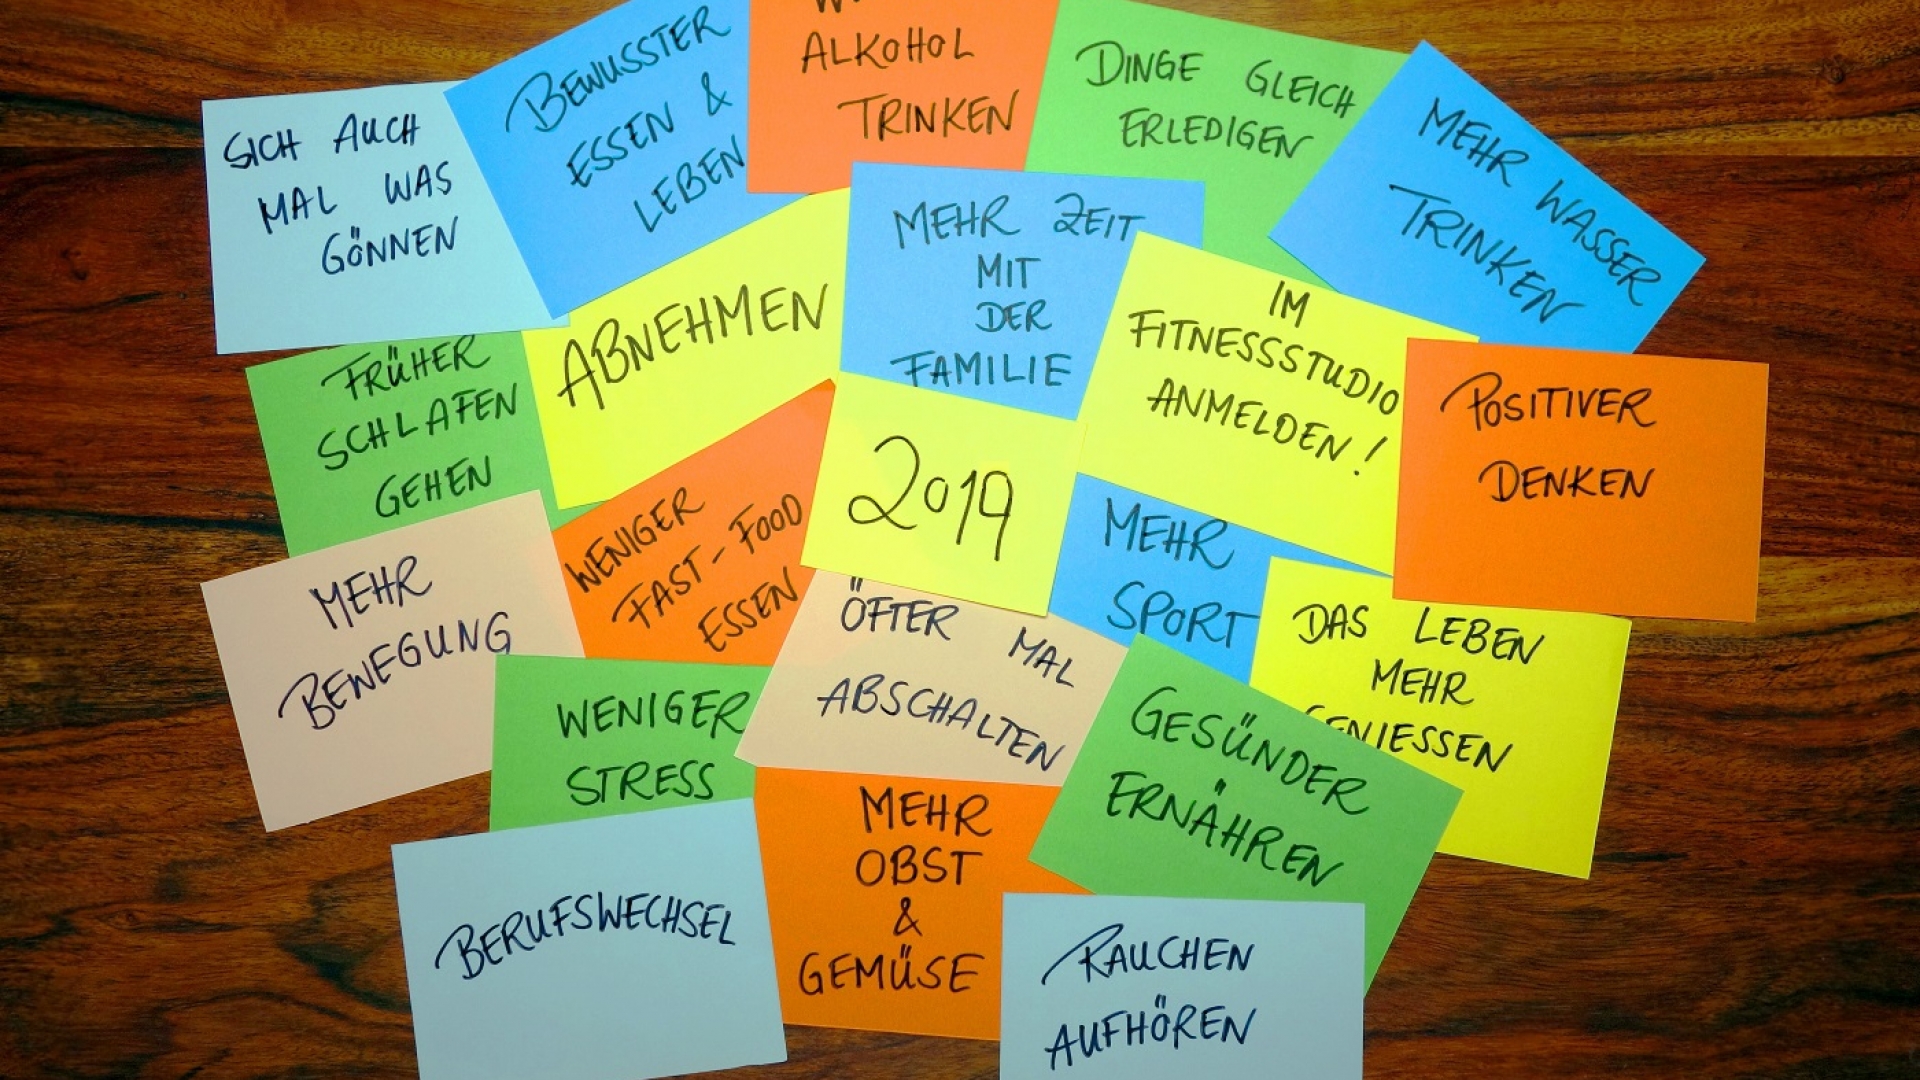 SICH AUCH
MAL WAS
GÖNNEN
BEWUSSTER
ESSEN &
LEBEN
ALKOHOL
TRINKEN
DINGE GLEICH
ERLEDIGEN
MEHR WASSER
TRINKEN
FRÜHER
SCHLAFEN
GEHEN
ABNEHMEN
MEHR ZEIT
MIT
DER
FAMILIE
IM
FITNESSSTUDIO
ANMELDEN!
POSITIVER
DENKEN
MEHR
BEWEGUNG
WENIGER
FAST-FOOD
ESSEN
2019
MEHR
SPORT
DAS LEBEN
MEHR
GENIESSEN
WENIGER
STRESS
ÖFTER MAL
ABSCHALTEN
GESÜNDER
ERNÄHREN
BERUFSWECHSEL
MEHR
OBST
&
GEMÜSE
RAUCHEN
AUFHÖREN